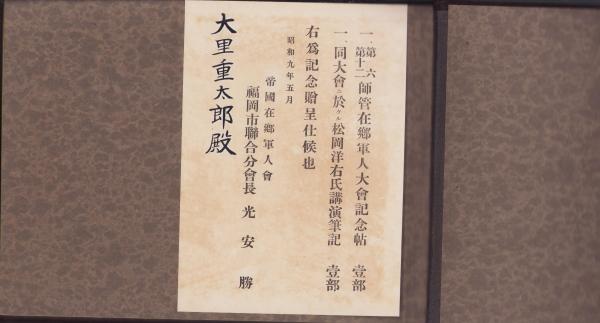 一、第六第十二師管在鄕軍人大會記念帖 壹部
一、同大會ニ於ケル松岡洋右氏講演筆記 壹部
右爲記念贈呈仕候也
昭和九年五月
帝國在鄕軍人會
福岡市聯合分會長 光安勝
大里重太郎殿